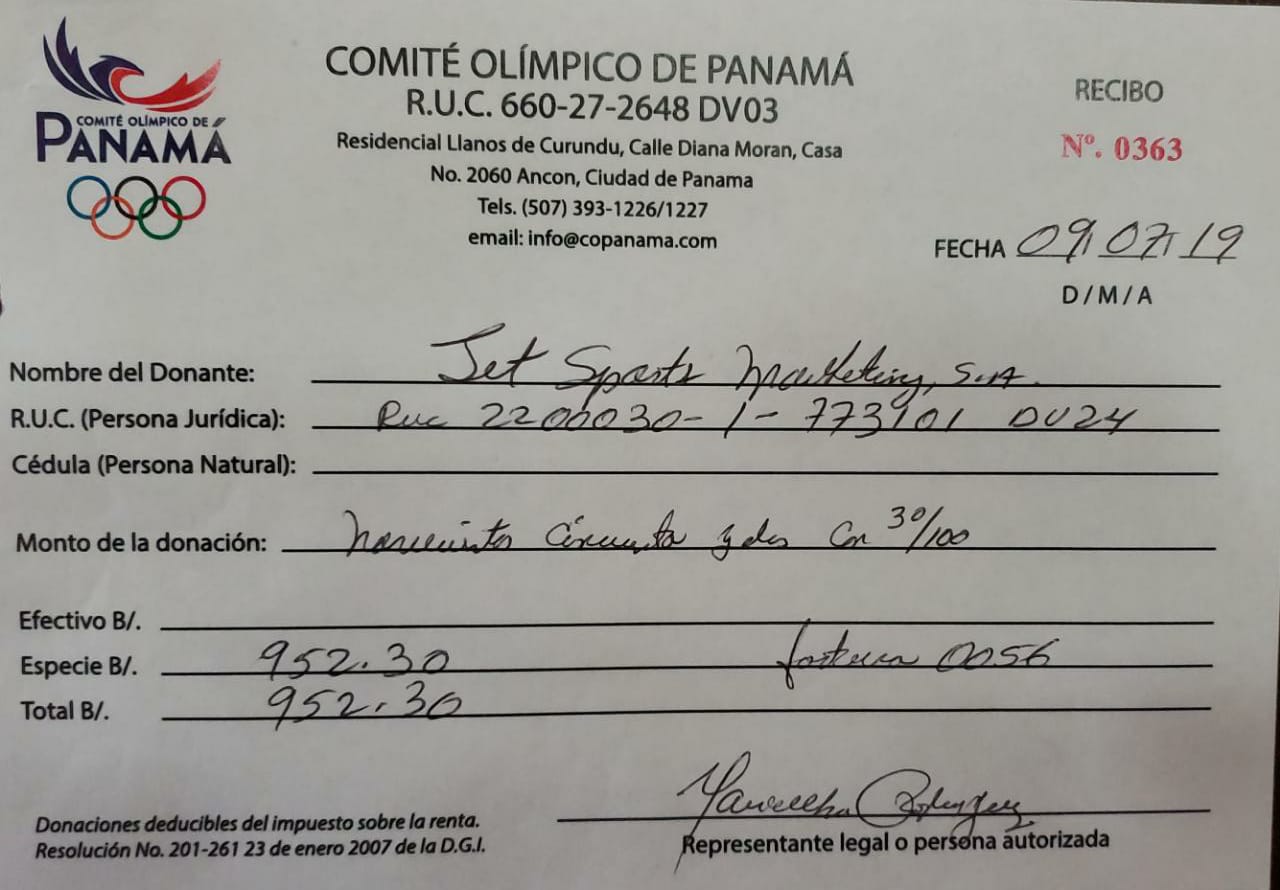 COMITÉ OLÍMPICO DE
PANAMÁ
COMITÉ OLÍMPICO DE PANAMÁ
R.U.C. 660-27-2648 DV03
Residencial Llanos de Curundu, Calle Diana Moran, Casa
No. 2060 Ancon, Ciudad de Panama
Tels. (507) 393-1226/1227
email: info@copanama.com
RECIBO
Nº. 0363
FECHA 09/07/19
D/M/A
Nombre del Donante: Jet Sports Marketing, S.A.
R.U.C. (Persona Jurídica): Ruc 2200030-1-773901 DV24
Cédula (Persona Natural):
Monto de la donación: novecientos cincuenta y dos con 30/100
Efectivo B/.
Especie B/. 952.30 factura 0056
Total B/. 952.30
Donaciones deducibles del impuesto sobre la renta.
Resolución No. 201-261 23 de enero 2007 de la D.G.I.
Representante legal o persona autorizada